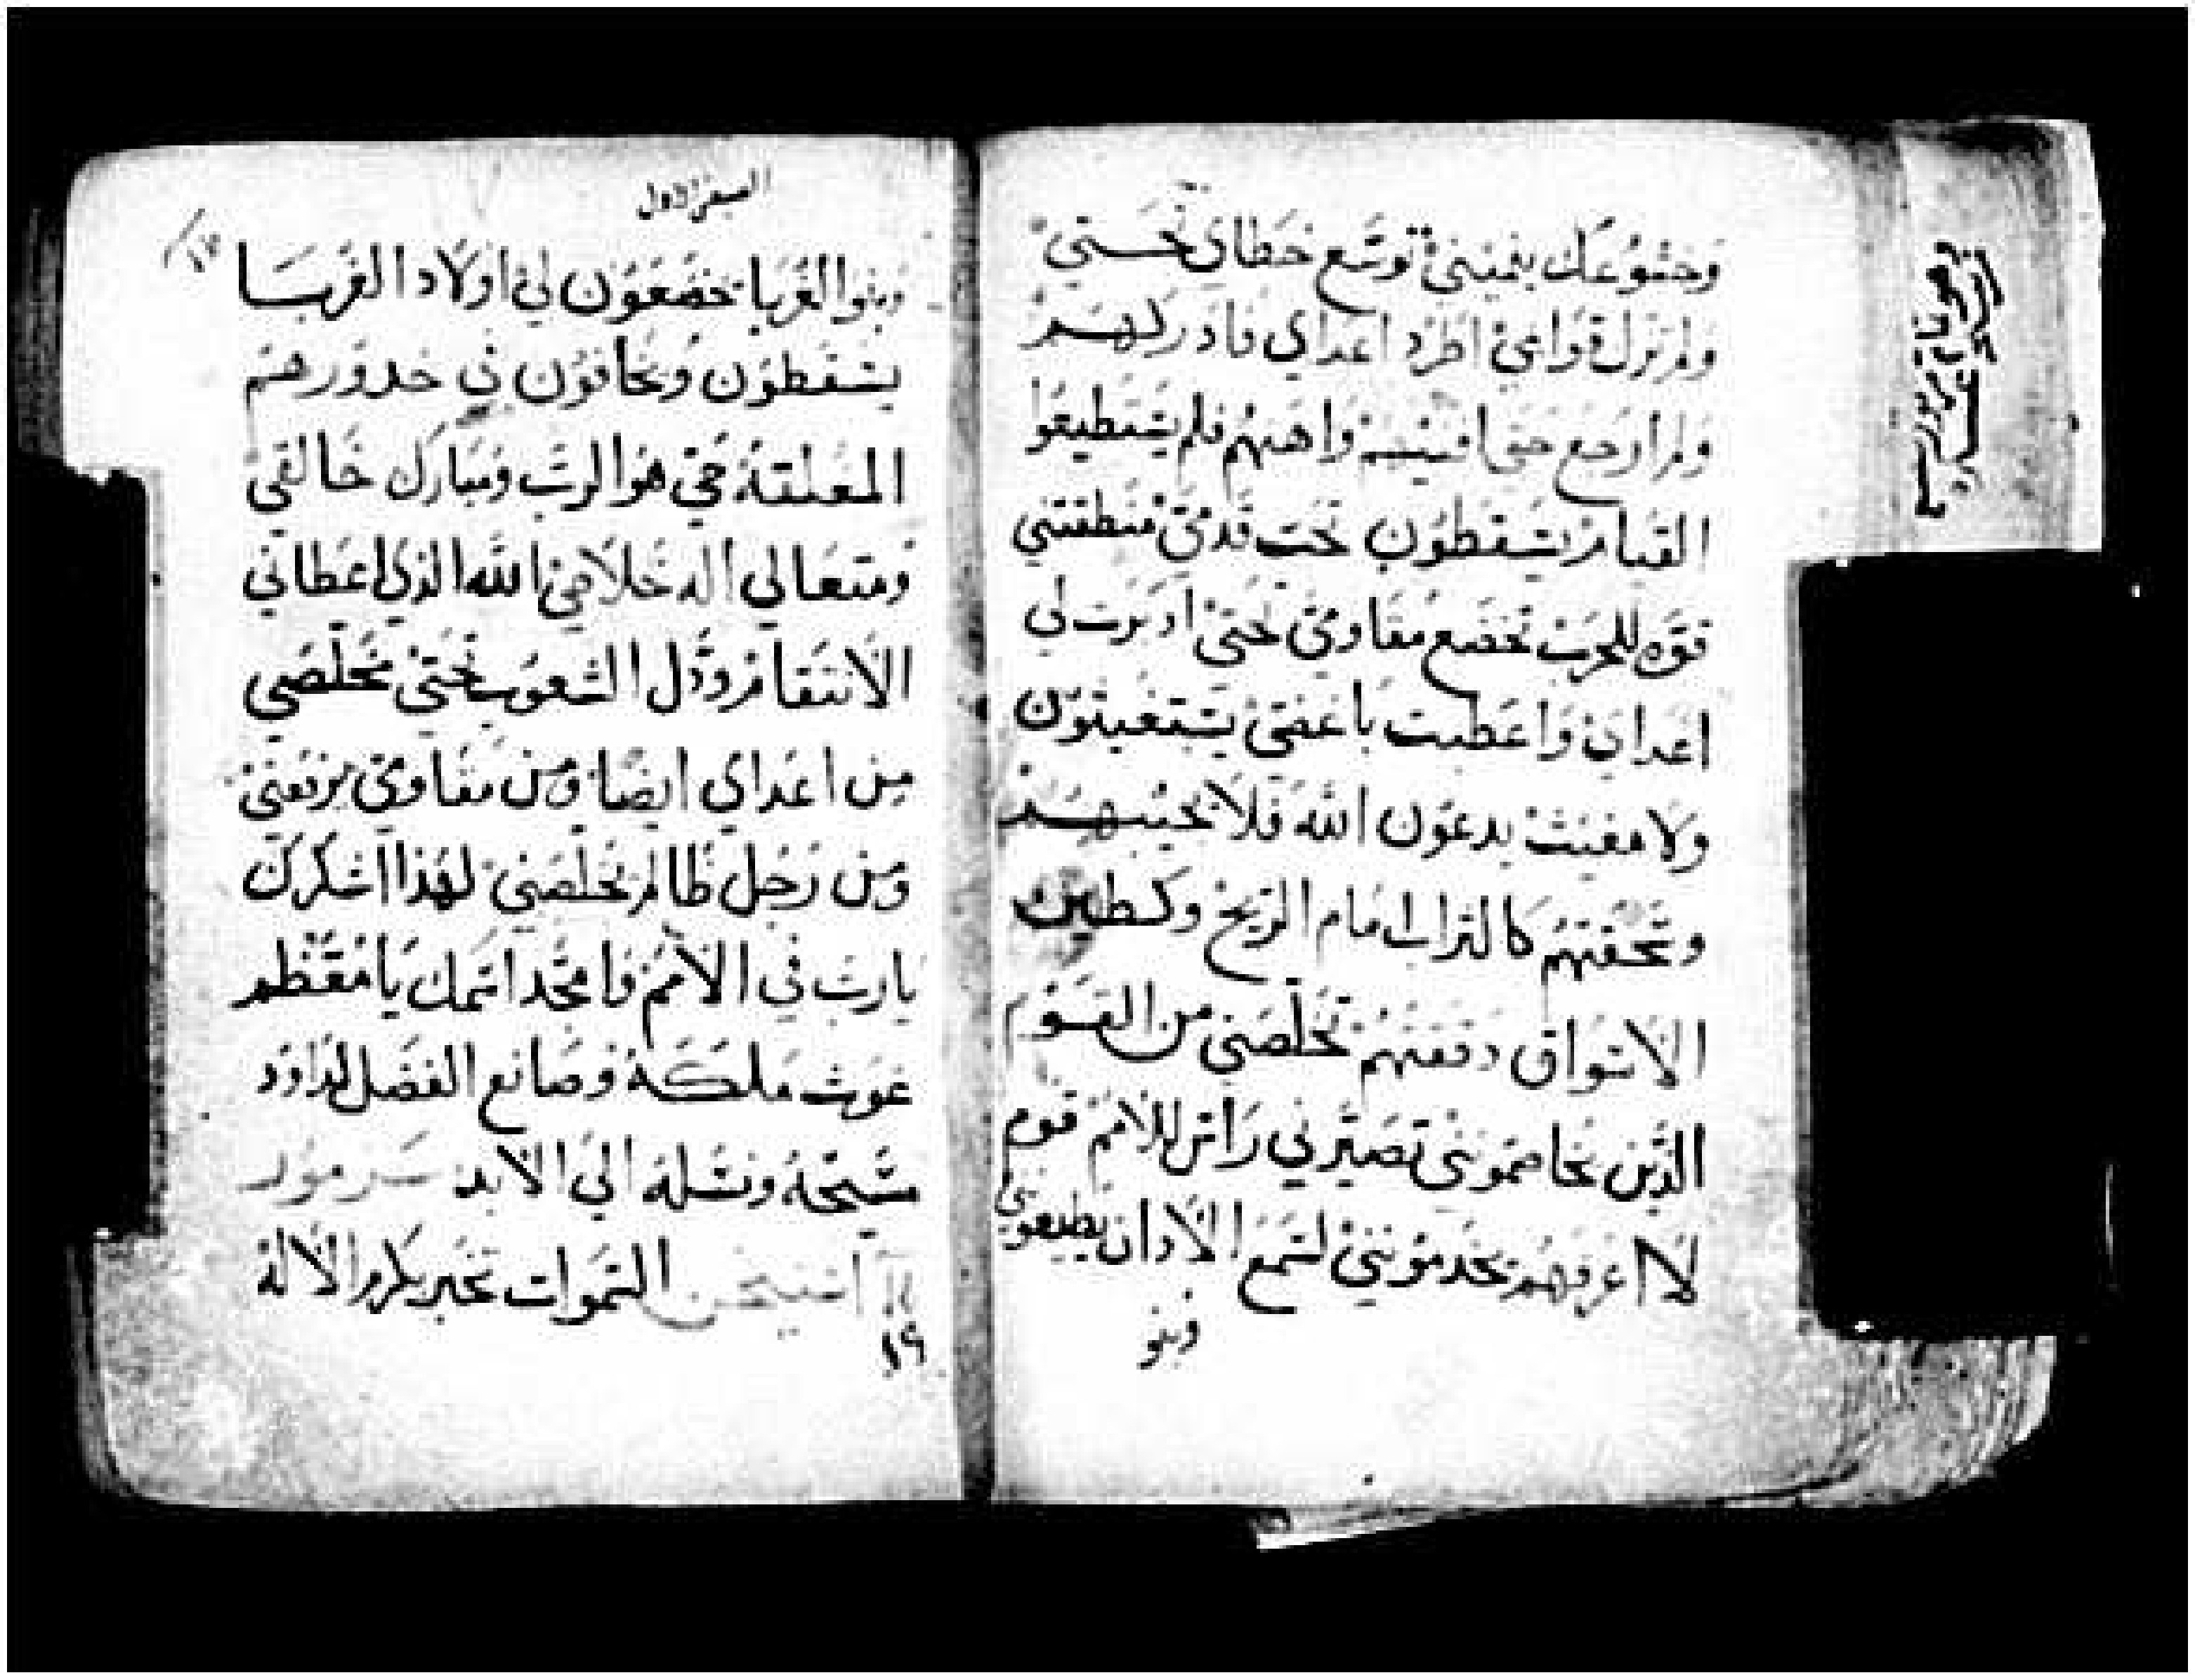 وخشوعك يقيمني توسع خطاي تحتي
ولم تزل قواي اطرد اعداي فادركهم
ولم ارجع حتى افنيهم واهنهم فلم يستطيعوا
القيام يسقطون تحت قدمي منطقتني
قوه للحرب تخضع مقاومي تحتي ادبرت لي
اعداي واعطيت باغضي يستغيثون
ولا مغيث يدعون الله فلا يجيبهم
وسحقتهم كالتراب امام الريح وكطين
الاسواق دققتهم تخلصني من القوم
الذين يخاصمونني تصيرني راس للامم قوم
لا اعرفهم يخدمونني لسمع الاذان يطيعوني
وبنو
السفر الاول
وبنوا الغربا خضعون لي اولاد الغربا
يسقطون ويخافون في خدورهم
المغلقة حي هو الرب ومبارك خالقي
ومتعالي اله خلاصي الله الذي اعطاني
الانتقام وذل الشعوب تحتي مخلصي
من اعداي ايضا ومن مقاومي يرفعني
ومن رجل ظالم يخلصني لهذا اشكرك
يارب في الامم وامجد اسمك يا معظم
غوث ملكه وصانع الفضل لداود
مسيحه ونسله الي الابد مزمور
السموات تخبر بكرم الاله
١٩